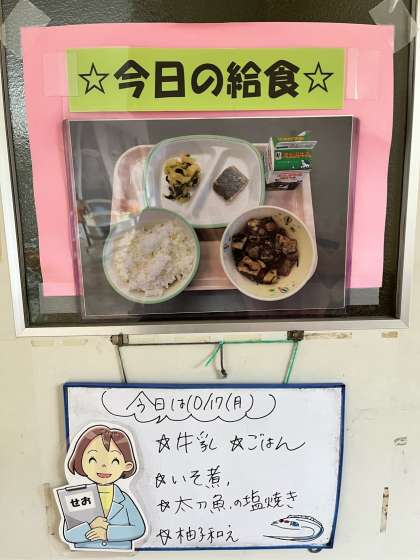 ☆今日の給食☆
今日は10/17(月)
☆牛乳 ☆ごはん
☆いそ煮
☆太刀魚の塩焼き
☆柚子和え
せお